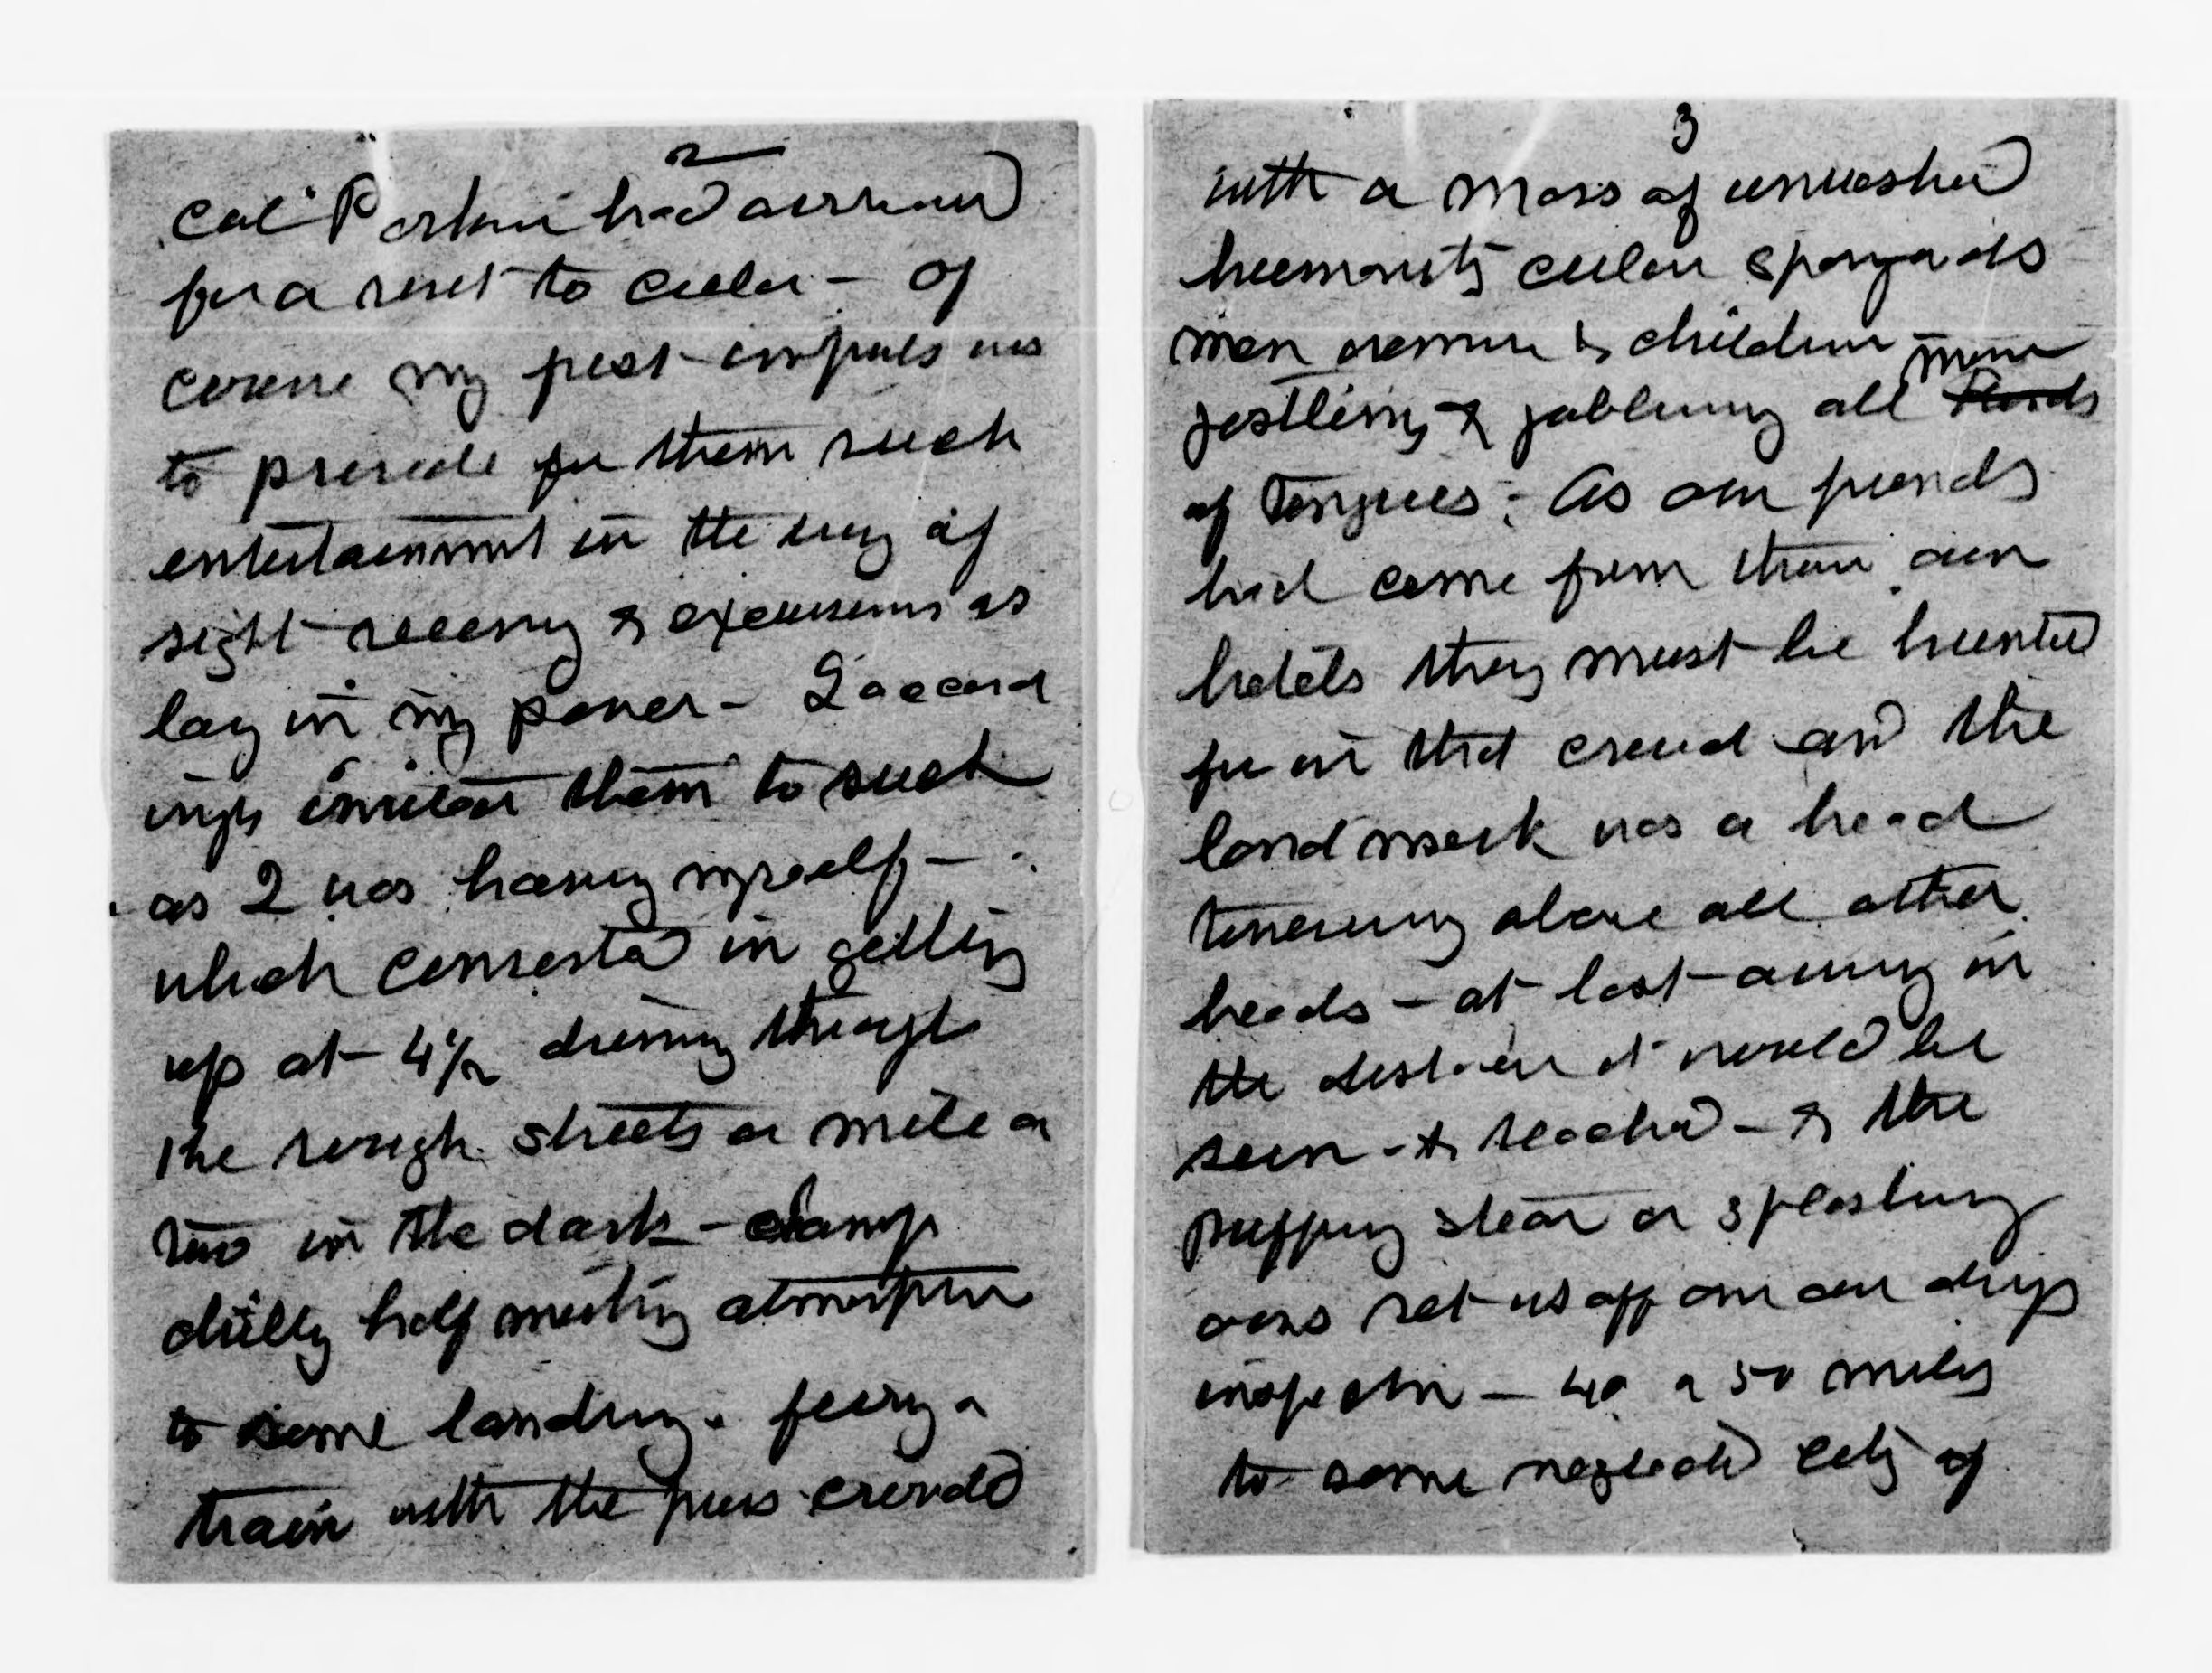 2
Col Parker had arrived
for a visit to Cuba - Of
course my first impuls was
to provide for them such
entertainment in the way of
sight seeing & excursions as
lay in my power - I accord
ingly invited them to such
as I was having myself -
which consisted in getting
up at 4½ driving through
the rough streets a mile or
two in the dark - damp
chilly half misting atmosphere
to some landing, ferry or
train with the piers crowded
3
with a mass of unwashed
humanity cuban spaniards
men women & children
jostling & jabbering all manner
of tongues; As our friends
had come from their own
hotels they must be hunted
for in that crowd and the
land mark was a head
towering above all other
heads - at last away in
the distance it would be
seen - & reached - & the
puffing steam or splashing
oars set us off on our days
inspection - 40 or 50 miles
to some neglected city of